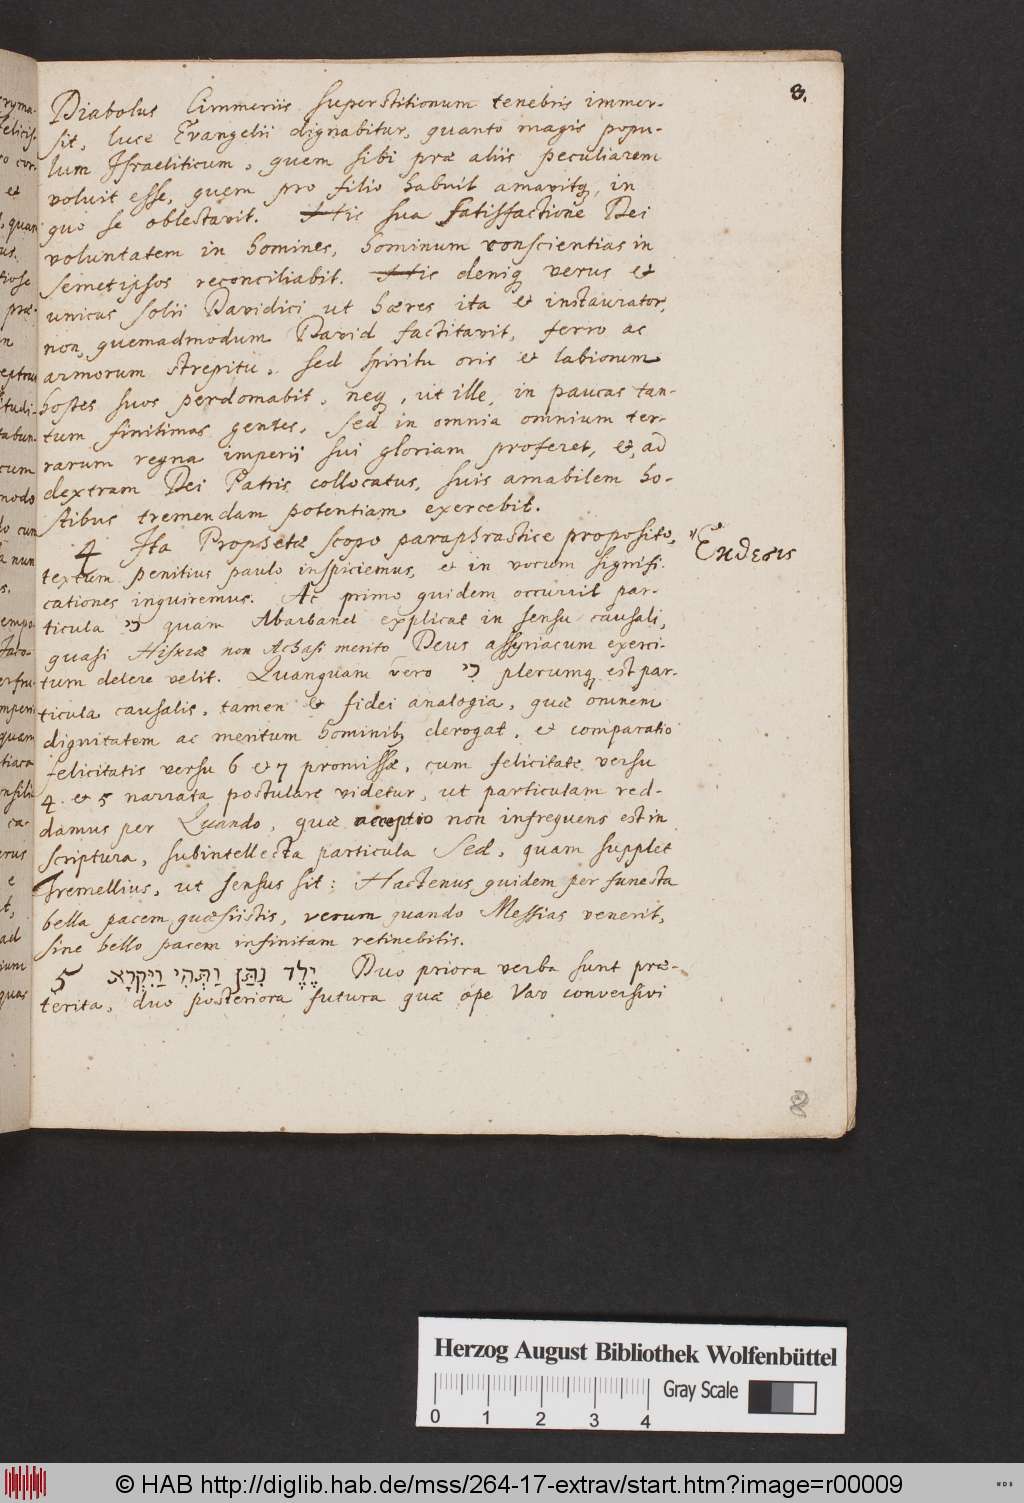 8.
Diabolus Cimmeriis superstitionum tenebris immer-
sit, luce Evangelii dignabitur, quanto magis popu-
lum Israeliticum, quem sibi præ aliis peculiarem
voluit esse, quem pro filio habuit amavitq, in
quo se oblectavit. His sua satisfactione Dei
voluntatem in homines, hominum conscientias in
semetipsos reconciliabit. His deniq verus et
unicus solii Davidici ut hæres ita et instaurator,
non, quemadmodum David factitavit, ferro ac
armorum strepitu, sed spiritu oris et labiorum
hostes suos perdomabit, neq, ut ille, in paucas tan-
tum finitimas gentes, sed in omnia omnium ter-
rarum regna imperii sui gloriam proferet, et, ad
dextram Dei Patris collocatus, suis amabilem ho-
stibus tremendam potentiam exercebit.
4 Ita Prophetæ scopo paraphrastice proposito,
Ἔκθεσις
textum penitius paulo inspiciemus, et in vocum signifi-
cationes inquiremus. Ac primo quidem occurrit par-
ticula כי quam Abarbanel explicat in sensu causali,
quasi Hiskiæ non Achasi merito Deus assyriacum exerci-
tum delere velit. Quanquam vero כי plerumq est par-
ticula causalis, tamen et fidei analogia, quæ omnem
dignitatem ac meritum hominib derogat, et comparatio
felicitatis versu 6 et 7 promissæ, cum felicitate versu
4 et 5 narrata postulare videtur, ut particulam red-
damus per Quando, quæ acceptio non infrequens est in
scriptura, subintellecta particula Sed, quam supplet
Tremellius, ut sensus sit: Hactenus quidem per funesta
bella pacem quæsiistis, verum quando Messias venerit,
sine bello pacem infinitam retinebitis.
5 יֶלֶד נִתַּן וַתְּהִי וַיִּקְרָא Duo priora verba sunt præ-
terita, duo posteriora futura quæ ope Vav conversivi
8
Herzog August Bibliothek Wolfenbüttel
Gray Scale
0 1 2 3 4
© HAB http://diglib.hab.de/mss/264-17-extrav/start.htm?image=r00009